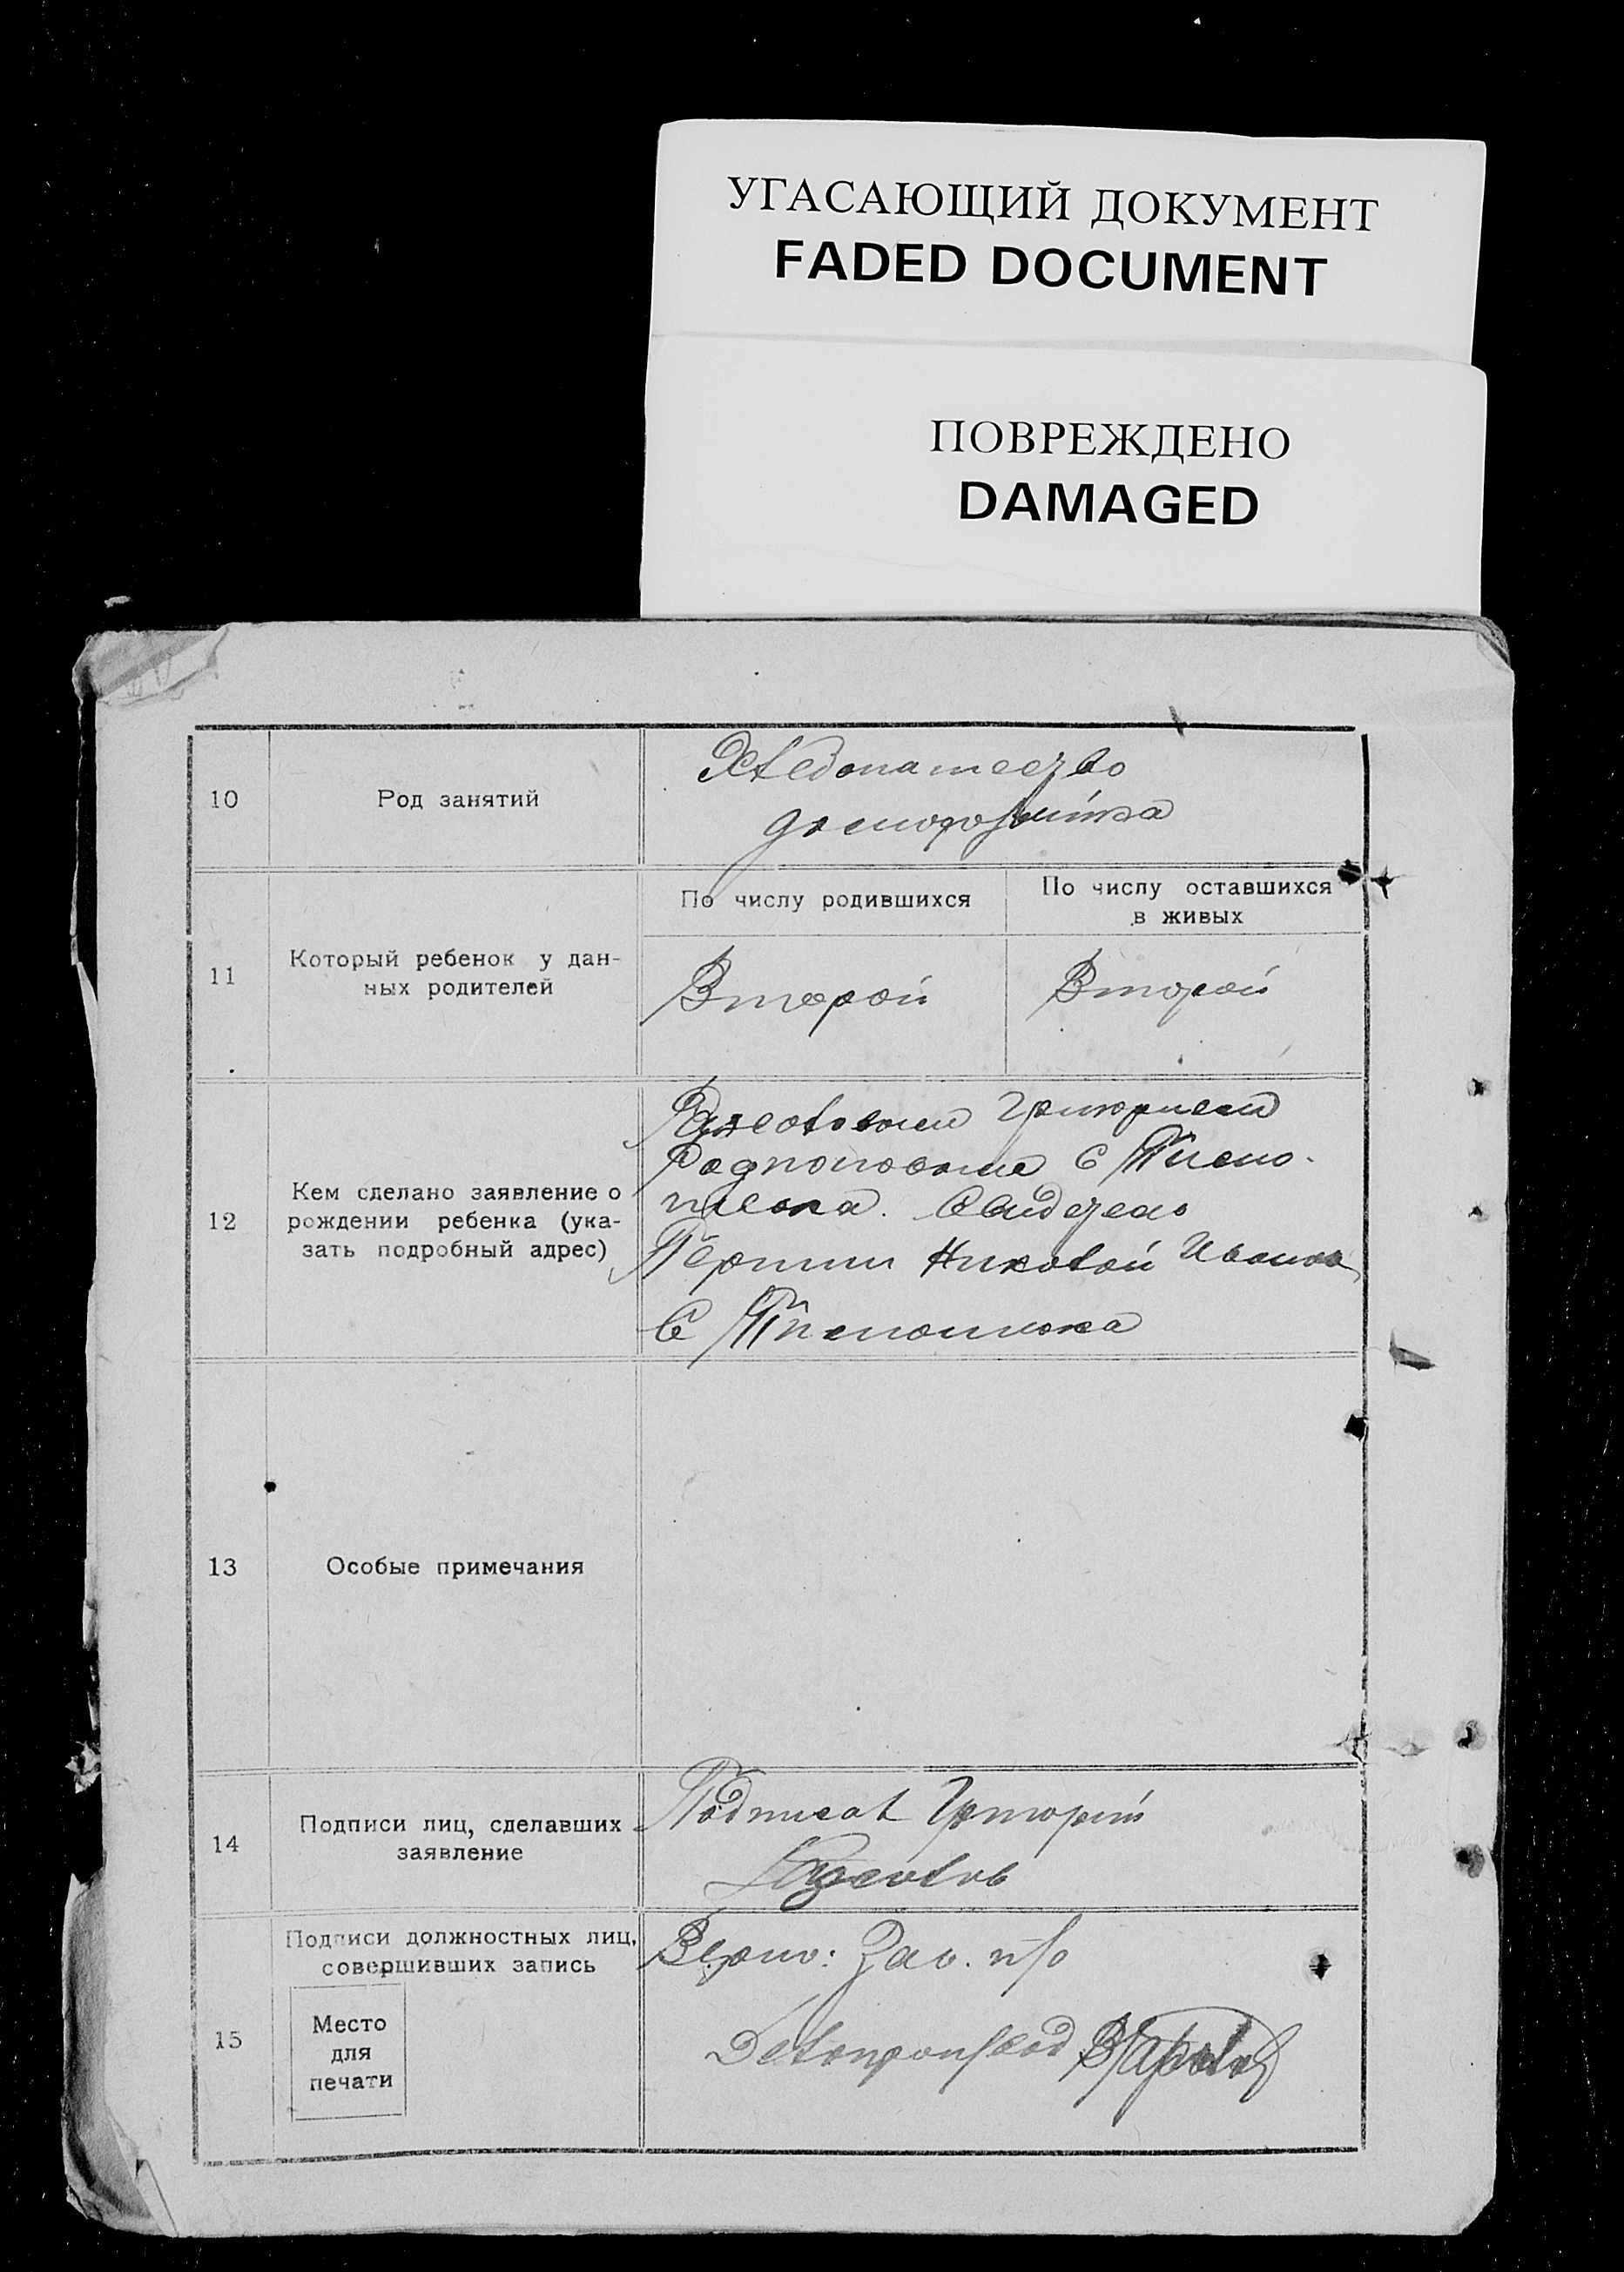 УГАСАЮЩИЙ ДОКУМЕНТ
FADED DOCUMENT
ПОВРЕЖДЕНО
DAMAGED
10
Род занятий
Хлебопашество
домохозяйка
11
Который ребенок у дан-
ных родителей
По числу родившихся
По числу оставшихся
в живых
Второй
Второй
12
Кем сделано заявление о
рождении ребенка (ука-
зать подробный адрес)
Григорием
с
Свидетель
Николай
с
13
Особые примечания
14
Подписи лиц, сделавших
заявление
Подписал Григорий
15
Подписи должностных лиц,
совершивших запись
Место
для
печати
Верно: Зав. п/о
Делопроизвод